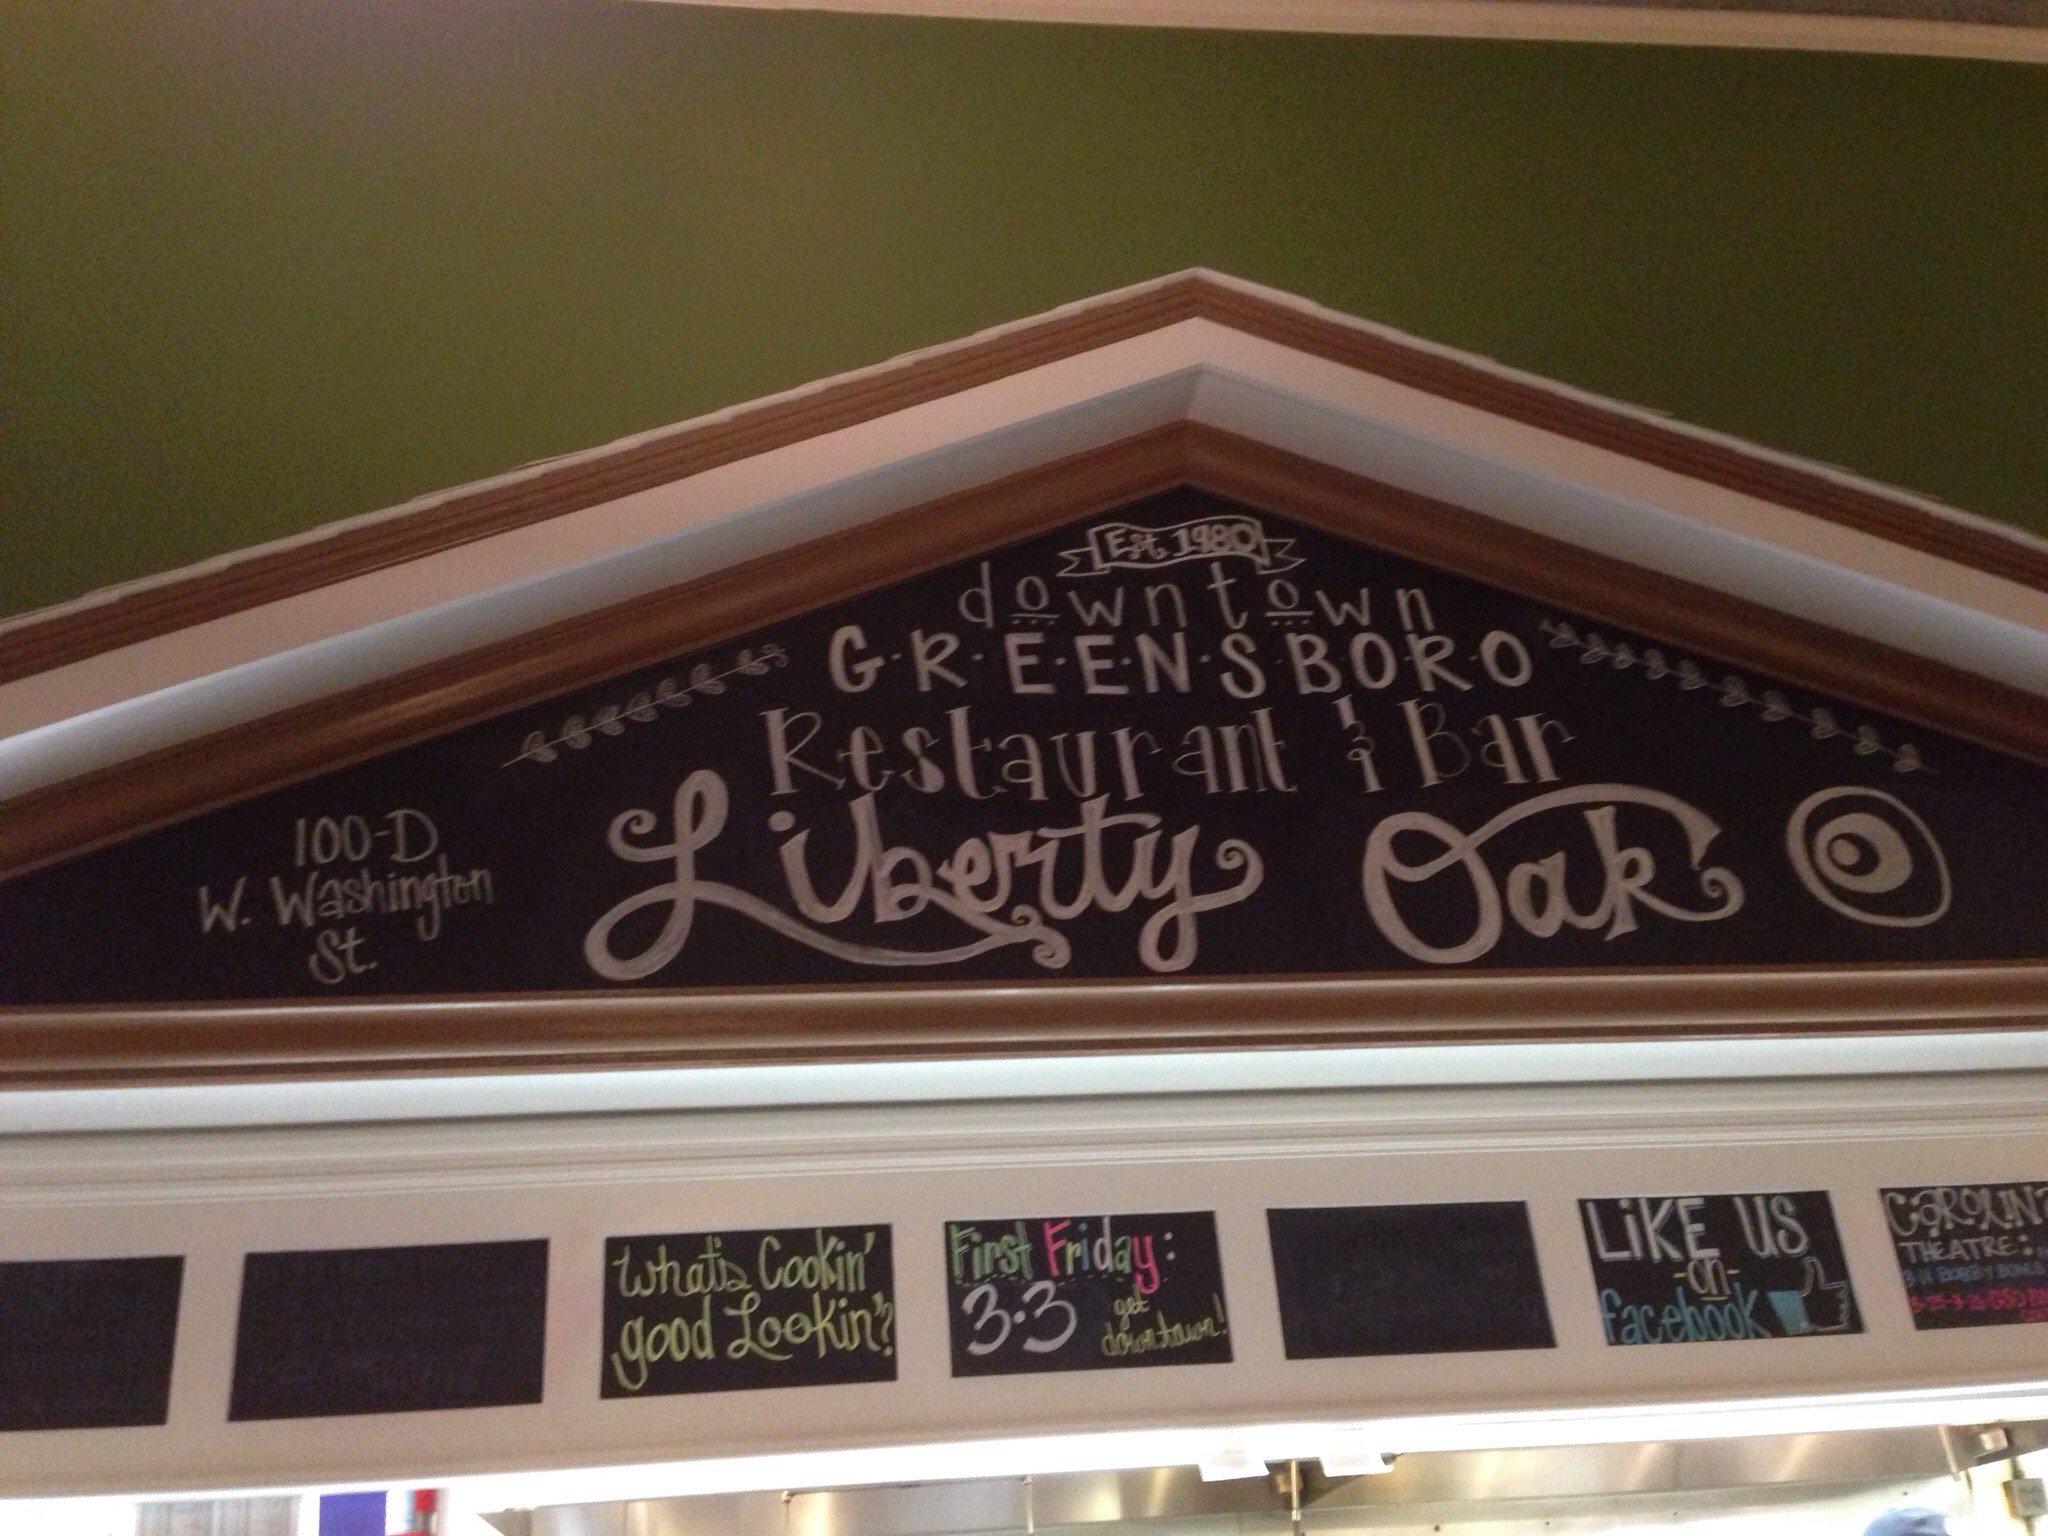 Est. 1980
downtown
G·R·E·E·N·S·B·O·R·O
Restaurant & Bar
Liberty Oak
100-D
W. Washington
St.
What's Cookin'
good Lookin'?
First Friday:
3.3 get
downtown!
LiKE US
-on-
facebook
CAROLINA
THEATRE: